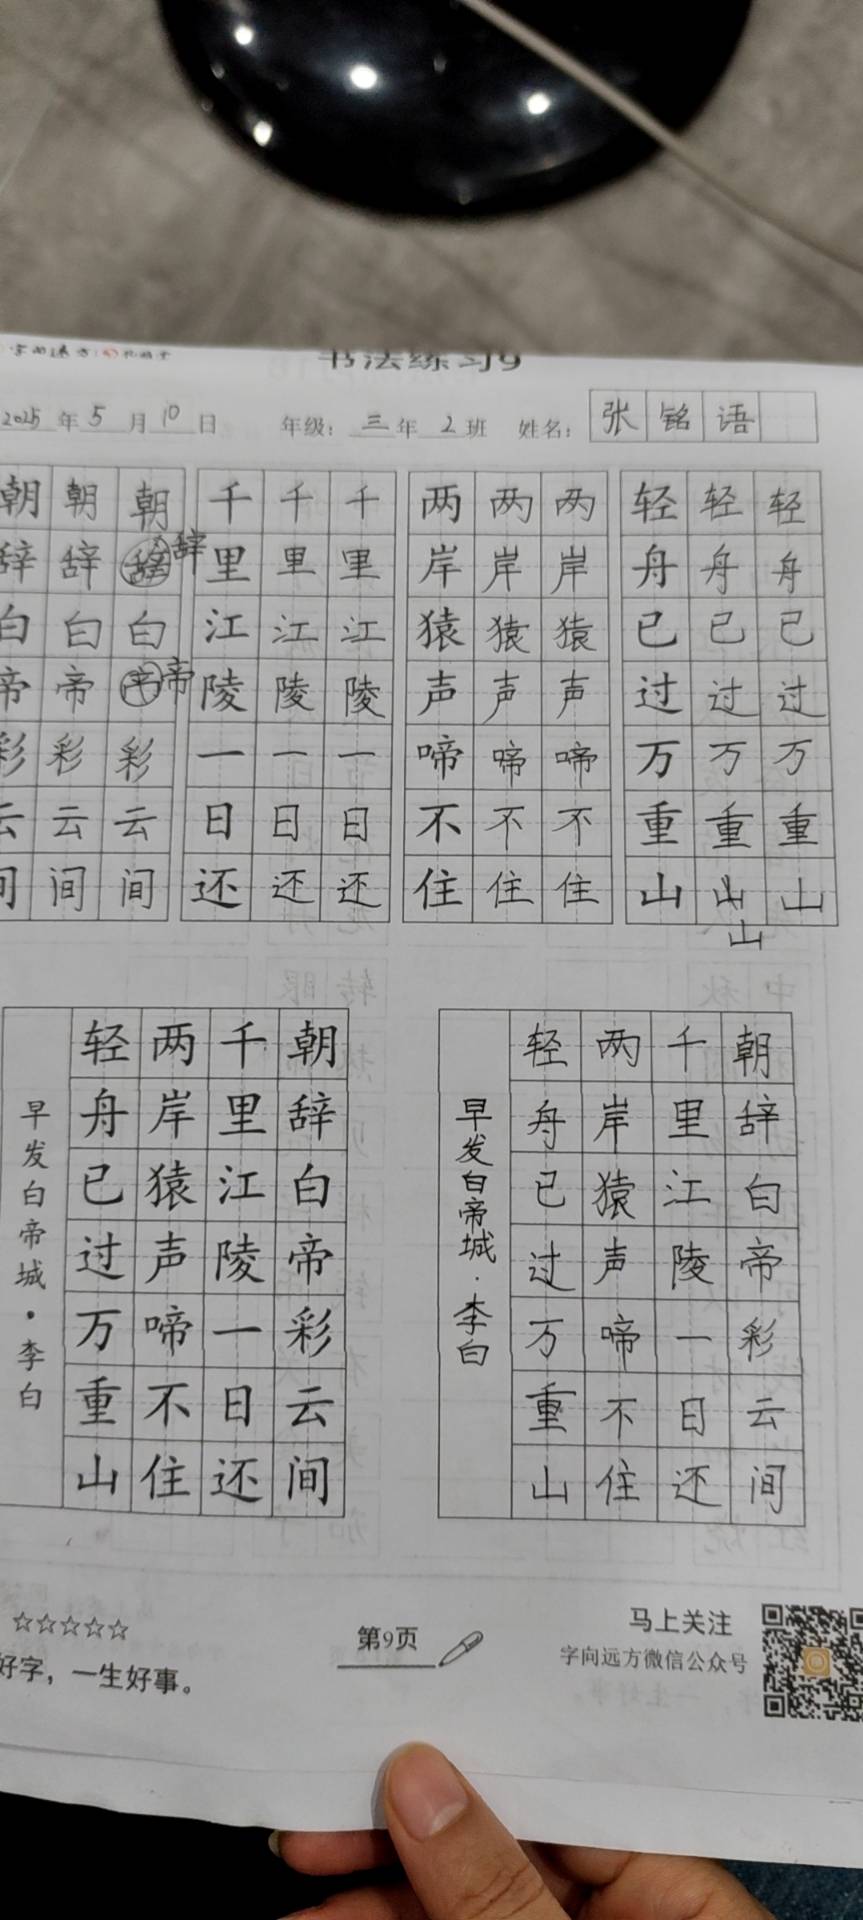 书法练习9
2025年5月10日 年级：三年2班 姓名：张铭语
朝朝朝 千千千 两两两 轻轻轻
辞辞辞辞 里里里 岸岸岸 舟舟舟
白白白 江江江 猿猿猿 已已已
帝帝帝帝 陵陵陵 声声声 过过过
彩彩彩 一一一 啼啼啼 万万万
云云云 日日日 不不不 重重重
间间间 还还还 住住住 山山山
山
早发白帝城·李白
轻两千朝
舟岸里辞
已猿江白
过声陵帝
万啼一彩
重不日云
山住还间
早发白帝城·李白
轻两千朝
舟岸里辞
已猿江白
过声陵帝
万啼一彩
重不日云
山住还间
☆☆☆☆☆
好字，一生好事。
第9页
马上关注
字向远方微信公众号